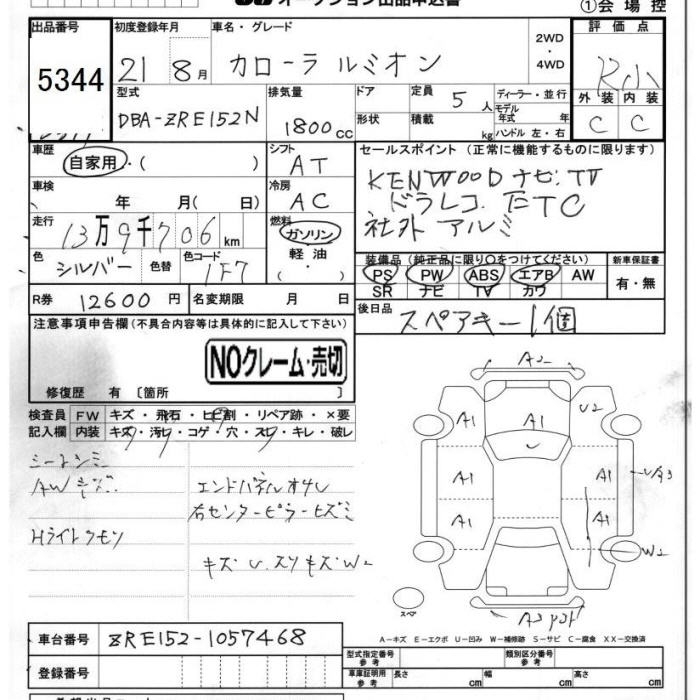 オークション出品申込書
①会場控
出品番号 初度登録年月 車名・グレード 2WD・4WD 評価点
5344 21 8月 カローラ ルミオン R小
型式 排気量 ドア 定員 5人 ディーラー・並行 外装 内装
DBA-ZRE152N 1800cc 形状 積載 kg モデル年式 年 ハンドル 左・右 C C
車歴 自家用・( ) シフト AT セールスポイント (正常に機能するものに限ります)
車検 年 月( 日) 冷房 AC KENWOODナビ.TV
ドラレコ. ETC
走行 13万9千706km 燃料 ガソリン 軽油 ・( ) 社外アルミ
色 シルバー 色替 色コード 1F7 装備品 (純正品に限り○をつけてください) 新車保証書
PS PW ABS エアB AW 有・無
SR ナビ TV カワ
R券 12600円 名変期限 月 日 後日品 スペアキー1個
注意事項申告欄(不具合内容等は具体的に記入して下さい)
NOクレーム・売切
修復歴 有 〔箇所 〕
検査員 FW キズ・飛石・ヒビ割・リペア跡・×要
記入欄 内装 キズ・汚レ・コゲ・穴・スレ・キレ・破レ
シートシミ
AWキズ エンドパネルオサレ
右センターピラーヒズミ
Hライトクモリ
キズ U.スリキズ W2
A2
A1 A1 U2
A1 A1 UA3
A1 A1
W2
スペア
A-キズ E-エクボ U-凹み W-補修跡 S-サビ C-腐食 XX-交換済
車台番号 ZRE152-1057468
登録番号
型式指定番号 参考 類別区分番号 参考
車庫証明用 参考 長さ cm 幅 cm 高さ cm